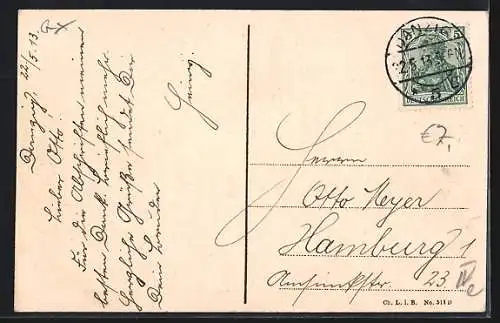 Danzig, 22/5.13.
Lieber Otto!
Für die Abschriften meinen
besten Dank.
Herzliche Grüße sendet Dir
Dein Bruder
Georg.
DANZIG
22.5.13.
5
DEUTSCHES REICH
€7,
Herrn
Otto Meyer
Hamburg 1
23 IV
Ch. L. i. B. No. 511 B